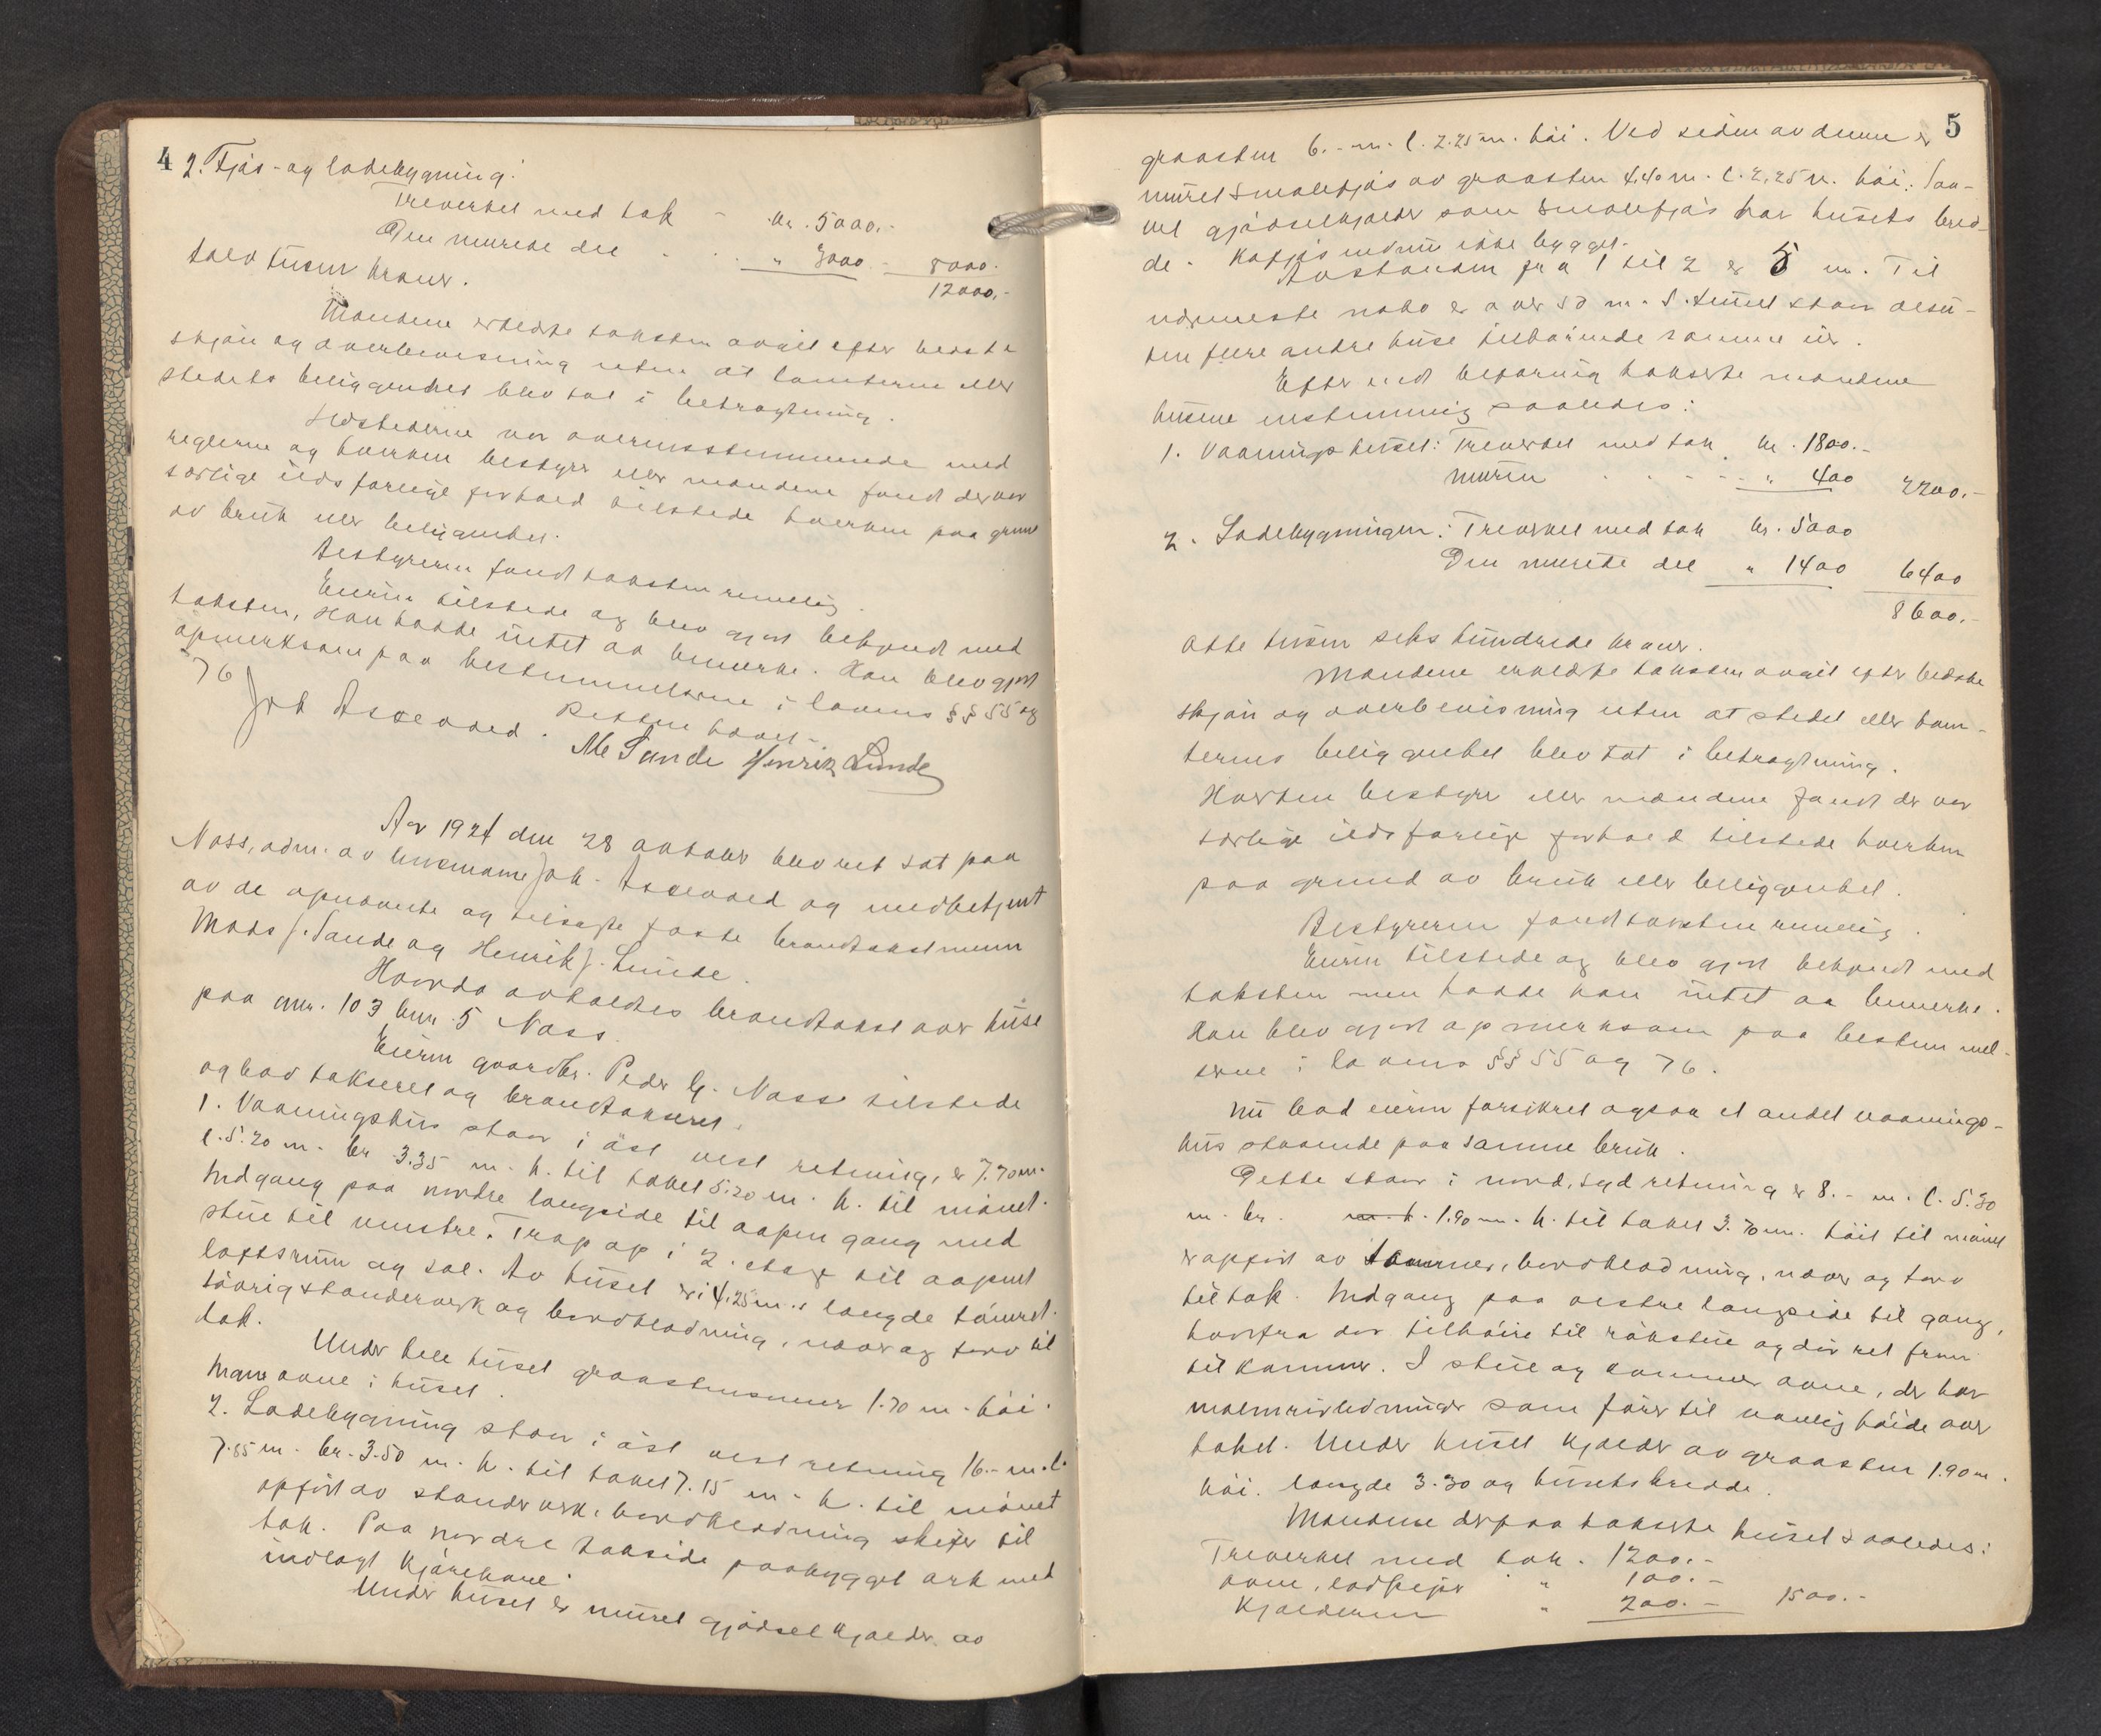 4
2. Fjøs- og ladebygning:
Treverket med tak - kr. 5000.-
Den murede del . . . " 3000.- 8000.-
12000.-
tolv tusen kroner.
Mændene erklærte taksten avgit efter bedste
skjøn og overbevisning uten at tomterne eller
stedets beliggenhet blev tat i betragtning.
Ildstederne var overensstemmende med
reglerne og hverken bestyrer eller mændene fandt der var
særlige ildsfarlige forhold tilstede hverken paa grund
av bruk eller beliggenhet.
Bestyreren fandt taksten rimelig.
Eieren tilstede og blev gjort bekjendt med
taksten, han hadde intet at bemerke. Han blev gjort
opmerksom paa bestemmelserne i lovens §§ 55 og
76
Retten hævet.
Joh Askevold. M Sande Henrik Lunde
Aar 1924 den 28 oktober blev ret sat paa
Nass, adm. av lensmann Joh. Askevold og medbetjent
av de opnævnte og tilsagte faste brandtakstmenn
Mads J. Sande og Henrik J. Lunde.
Hvorda avholdtes brandtakst over huse
paa gnr. 103 bnr. 5 Nass.
Eieren gaardbr. Peder G. Nass tilstede
og bad takseret og brandtakseret.
1. Vaaningshus staar i øst vest retning, er 7.70 m.
l. 5.20 m. br. 3.35 m. h. til taket 5.20 m. h. til mønet.
Indgang paa nordre langside til aapen gang med
stue til venstre. Trap op i 2. etage til aapent
loftsrum og sal. Av huset er i 4.25 m.s længde tømret.
Øvrig standerverk og bordklædning, næver og torv til
tak.
Under hele huset graastensmur 1.70 m. høi.
Ingen ovne i huset.
2. Ladebygning staar i øst vest retning 16.- m. l.
7.85 m. br. 3.50 m. h. til taket 7.15 m. h. til mønet
opført av standerverk, bordklædning skifer til
tak. Paa nordre takside paabygget ark med
indlagt kjørebane.
Under huset er muret gjødselkjælder av
5
graasten 6.- m. l. 2.25 m. høi. Ved siden av denne er
muret smalefjøs av graasten 4.40 m. l. 2,25 m. høi. Saa-
vel gjødselkjælder som smalefjøs har husets bred-
de. Kofjøs endnu ikke bygget.
Avstanden fra 1 til 2 er 5 m. Til
nærmeste nabo er over 50 m. I tunet staar desu-
ten flere andre huse tilhørende samme eier.
Efter endt befaring takserte mændene
husene enstemmig saaledes:
1. Vaaningshuset: Treverket med tak kr. 1800.-
Muren . . . . . " 400 2200.-
2. Ladebygningen: Treverket med tak kr. 5000
Den murete del " 1400 6400
8600.-
Otte tusen seks hundrede kroner.
Mændene erklærte taksten avgit efter bedste
skjøn og overbevisning uten at stedet eller tom-
ternes beliggenhet blev tat i betragtning.
Hverken bestyrer eller mændene fandt der var
særlige ildsfarlige forhold tilstede hverken
paa grund av bruk eller beliggenhet.
Bestyreren fandt taksten rimelig.
Eieren tilstede og blev gjort bekjendt med
taksten men hadde han intet at bemerke.
Han blev gjort opmerksom paa bestemmel-
serne i lovens §§ 55 og 76.
Nu bad eieren forsikret ogsaa et andet vaanings-
hus staaende paa samme bruk.
Dette staar i nord, syd retning er 8.- m. l. 5.30
m. br. m. h. 1.90 m. h. til taket 3.70 m. høit til mønet
er opført av tømmer, bordklædning, næver og torv
til tak. Indgang paa vestre langside til gang,
hvorfra dør tilhøire til røkstue og dør ret frem
til kammer. I stue og kammer ovne, der har
malmrørledninger som fører til vanlig høide over
taket. Under huset kjælder av graasten 1.90 m.
høi. længde 3.30 og husets bredde.
Mændene derpaa takserte huset saaledes:
Treverket med tak . 1200.-
ovne, " 100.-
Kjælderen " 200.- 1500.-